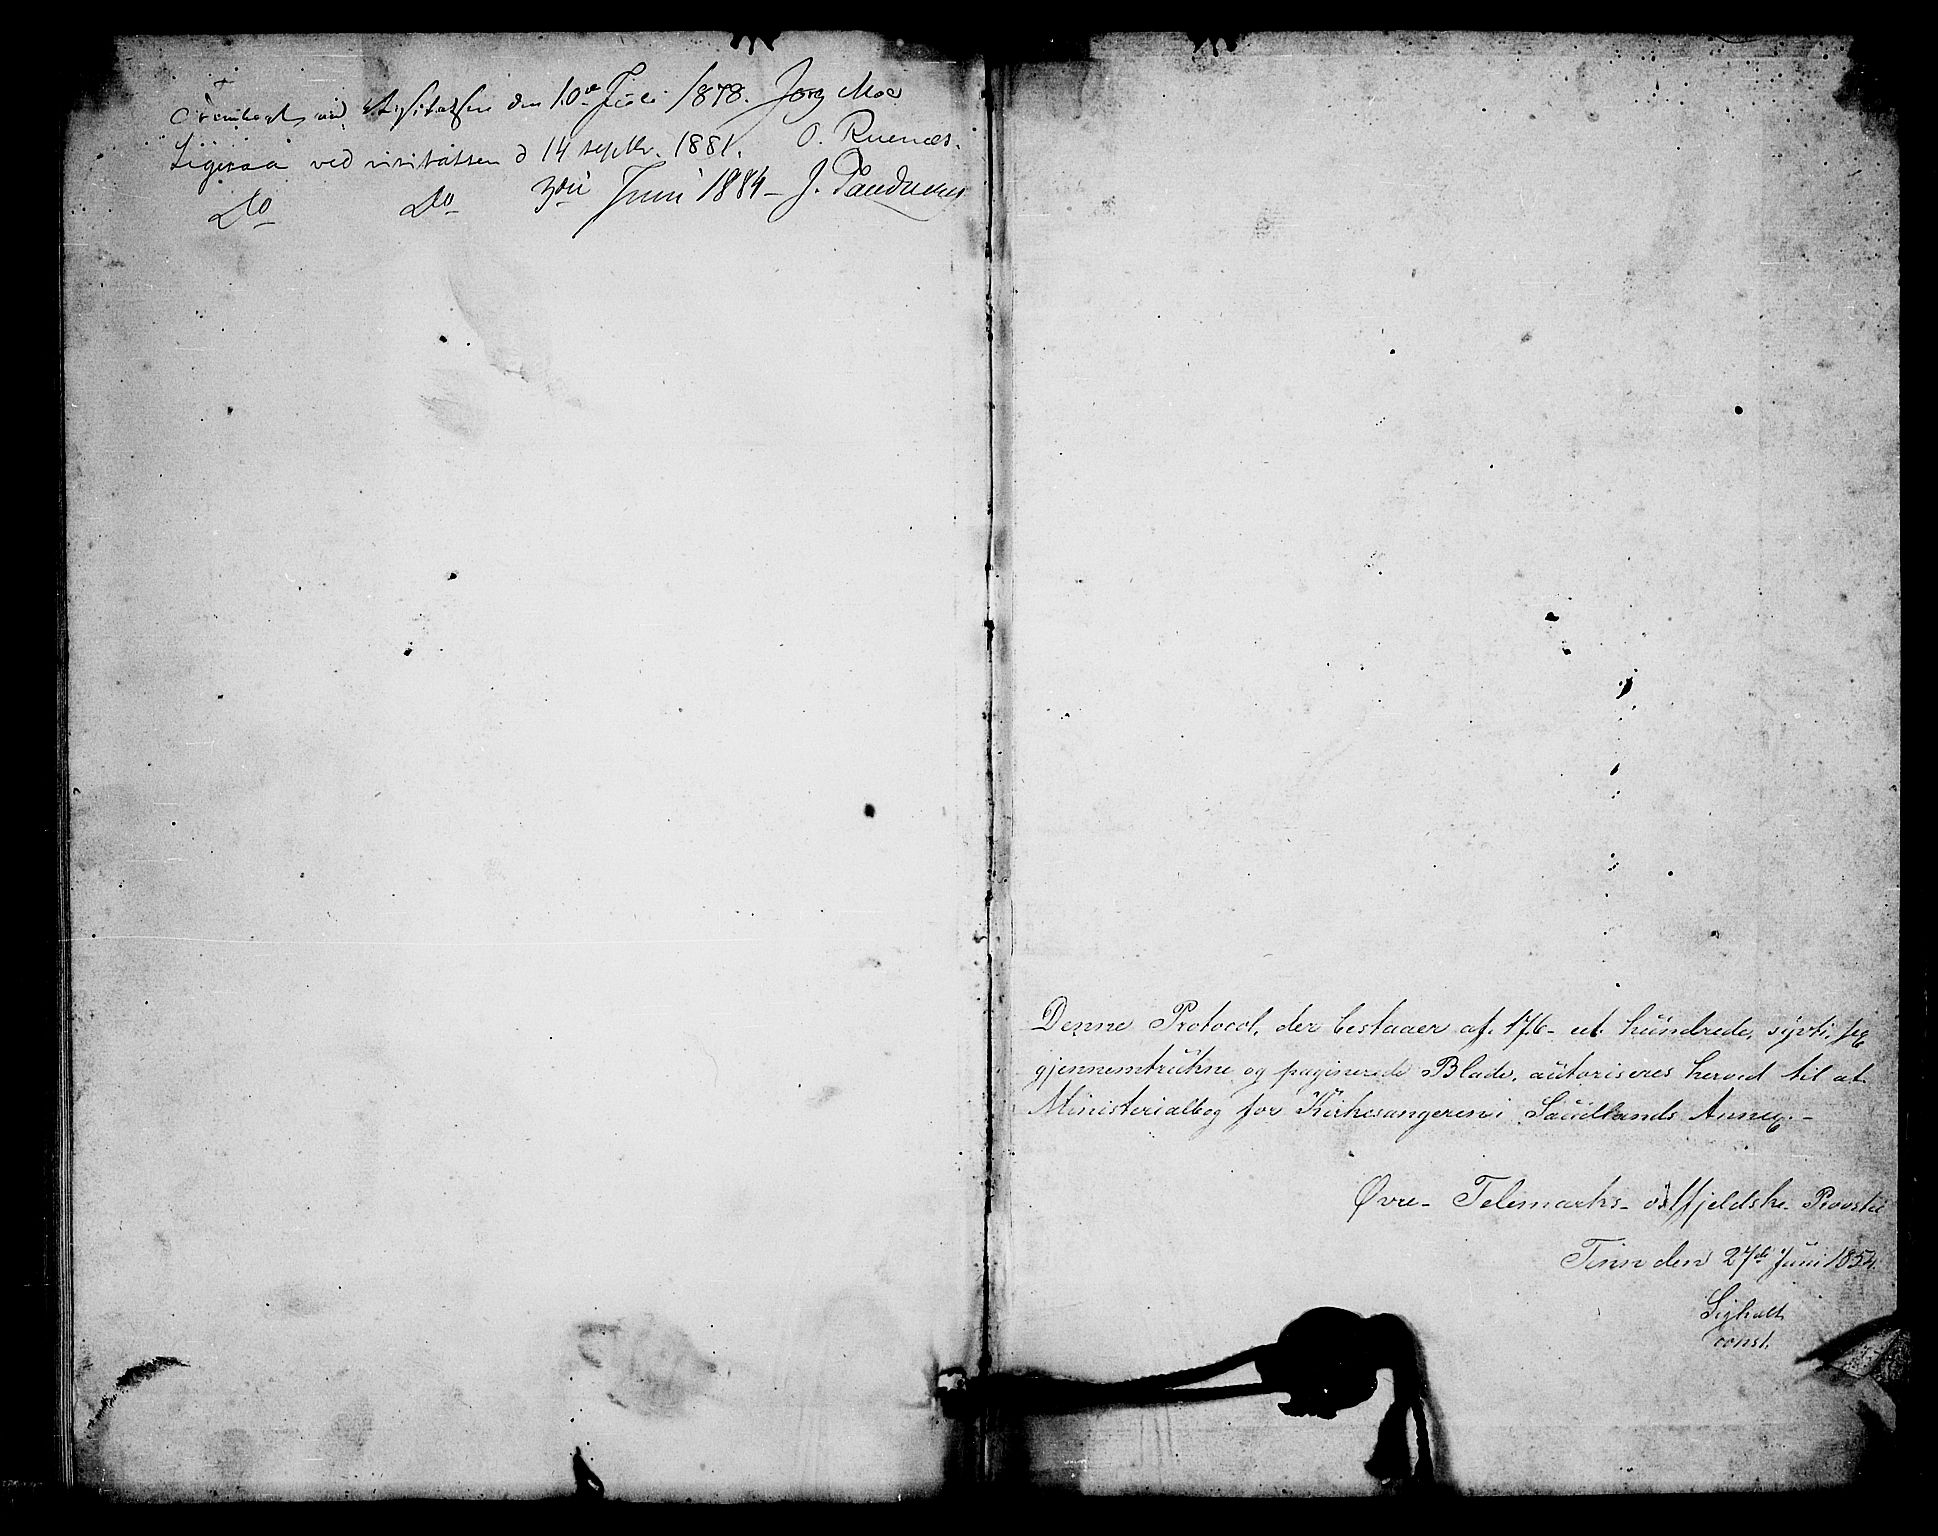 Fremlagt ved Visitatsen den 10de Juli 1878. Jørg Moe
Ligesaa ved visitatsen d 14 septbr. 1881. O. Ruenæs.
Do Do 3die Juni 1884 - J.
Denne Protocol, der bestaaer af 176 - et hundrede, sytti, sex
gjennemtrukne og paginerede Blade, autoriseres herved til at
Ministerialbog for Kirkesangeren i Saudlands Annex. -
Øvre - Telemarks - østfjeldske Provstie
Tinn den 27de Juni 1854.
const.